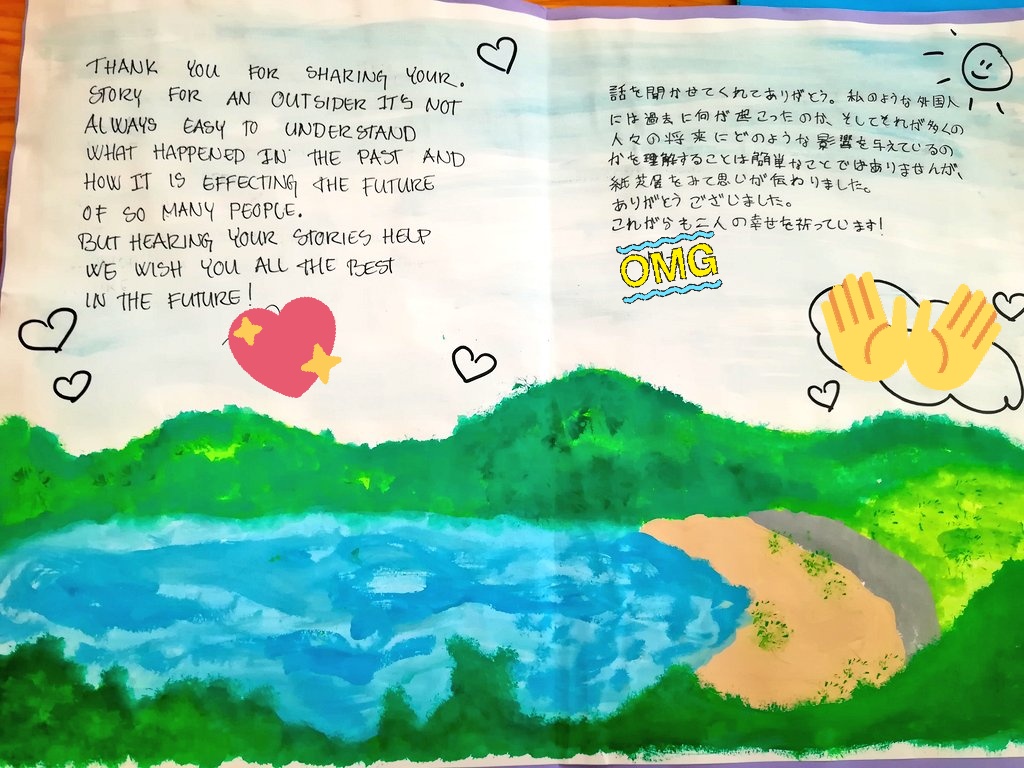 THANK YOU FOR SHARING YOUR.
STORY FOR AN OUTSIDER IT'S NOT
ALWAYS EASY TO UNDERSTAND
WHAT HAPPENED IN THE PAST AND
HOW IT IS EFFECTING THE FUTURE
OF SO MANY PEOPLE.
BUT HEARING YOUR STORIES HELP
WE WISH YOU ALL THE BEST
IN THE FUTURE!
話を聞かせてくれてありがとう。私のような外国人
には過去に何が起こったのか、そしてそれが多くの
人々の将来にどのような影響を与えているの
かを理解することは簡単なことではありませんが、
紙芝居をみて思いが伝わりました。
ありがとうございました。
これからも二人の幸せを祈っています!
OMG